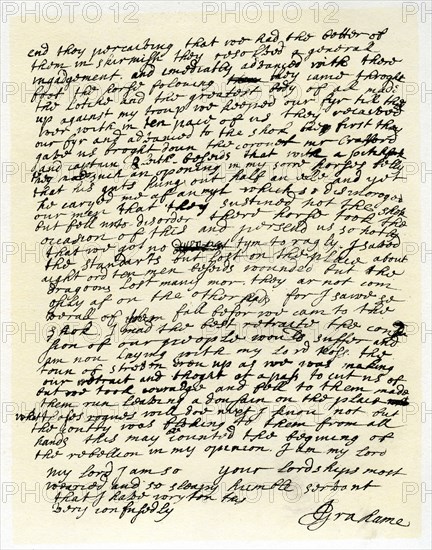 end they perceaving that we had the better of
them in skirmish they resolved a generall
ingadgment and imediatly advanced with there
foot the horse foloving they came throght
the lotche and the greatest body of all made
up against my troup we keeped our fyr till they
wer with in ten pace of us they recaived
our fyr and advanced to the shok the first they
gave us broght down the coronet mr Crafford
and captain Bleith besids that with a pitchfork
they mad such an opening in my sorre horses belly
that his guts hung out half an elle and yet
he caryed me af an myl which so discoroged
our men that they sustined not the shok
but fell into disorder there horse took the
occasion of this and perseud us so hotly
that we got no tym to rayly I saved
the standarts but lost on the place about
aight ord ten men besids wounded but the
dragoons lost many mor they ar not com
esily af on the other sid for I sawe se
verall of them fall befor we cam to the
shok I mad the best retraite the confu
sion of our people would suffer and
am now laying with my Lord Ross the
toun of streven drew up as we was making
our retrait and thoght of a pass to cut us of
but we took courage and fell to them made
them run leaving a dousain on the place
what these rogues will doe next I know not but
the contry was floking to them from all
hands this may be counted the begining of
the rebellion in my opinion I am my lord
my lord I am so your lordships most
wearied and so sleapy humble servant
that I have wryton this
very confusedly
JGrahame